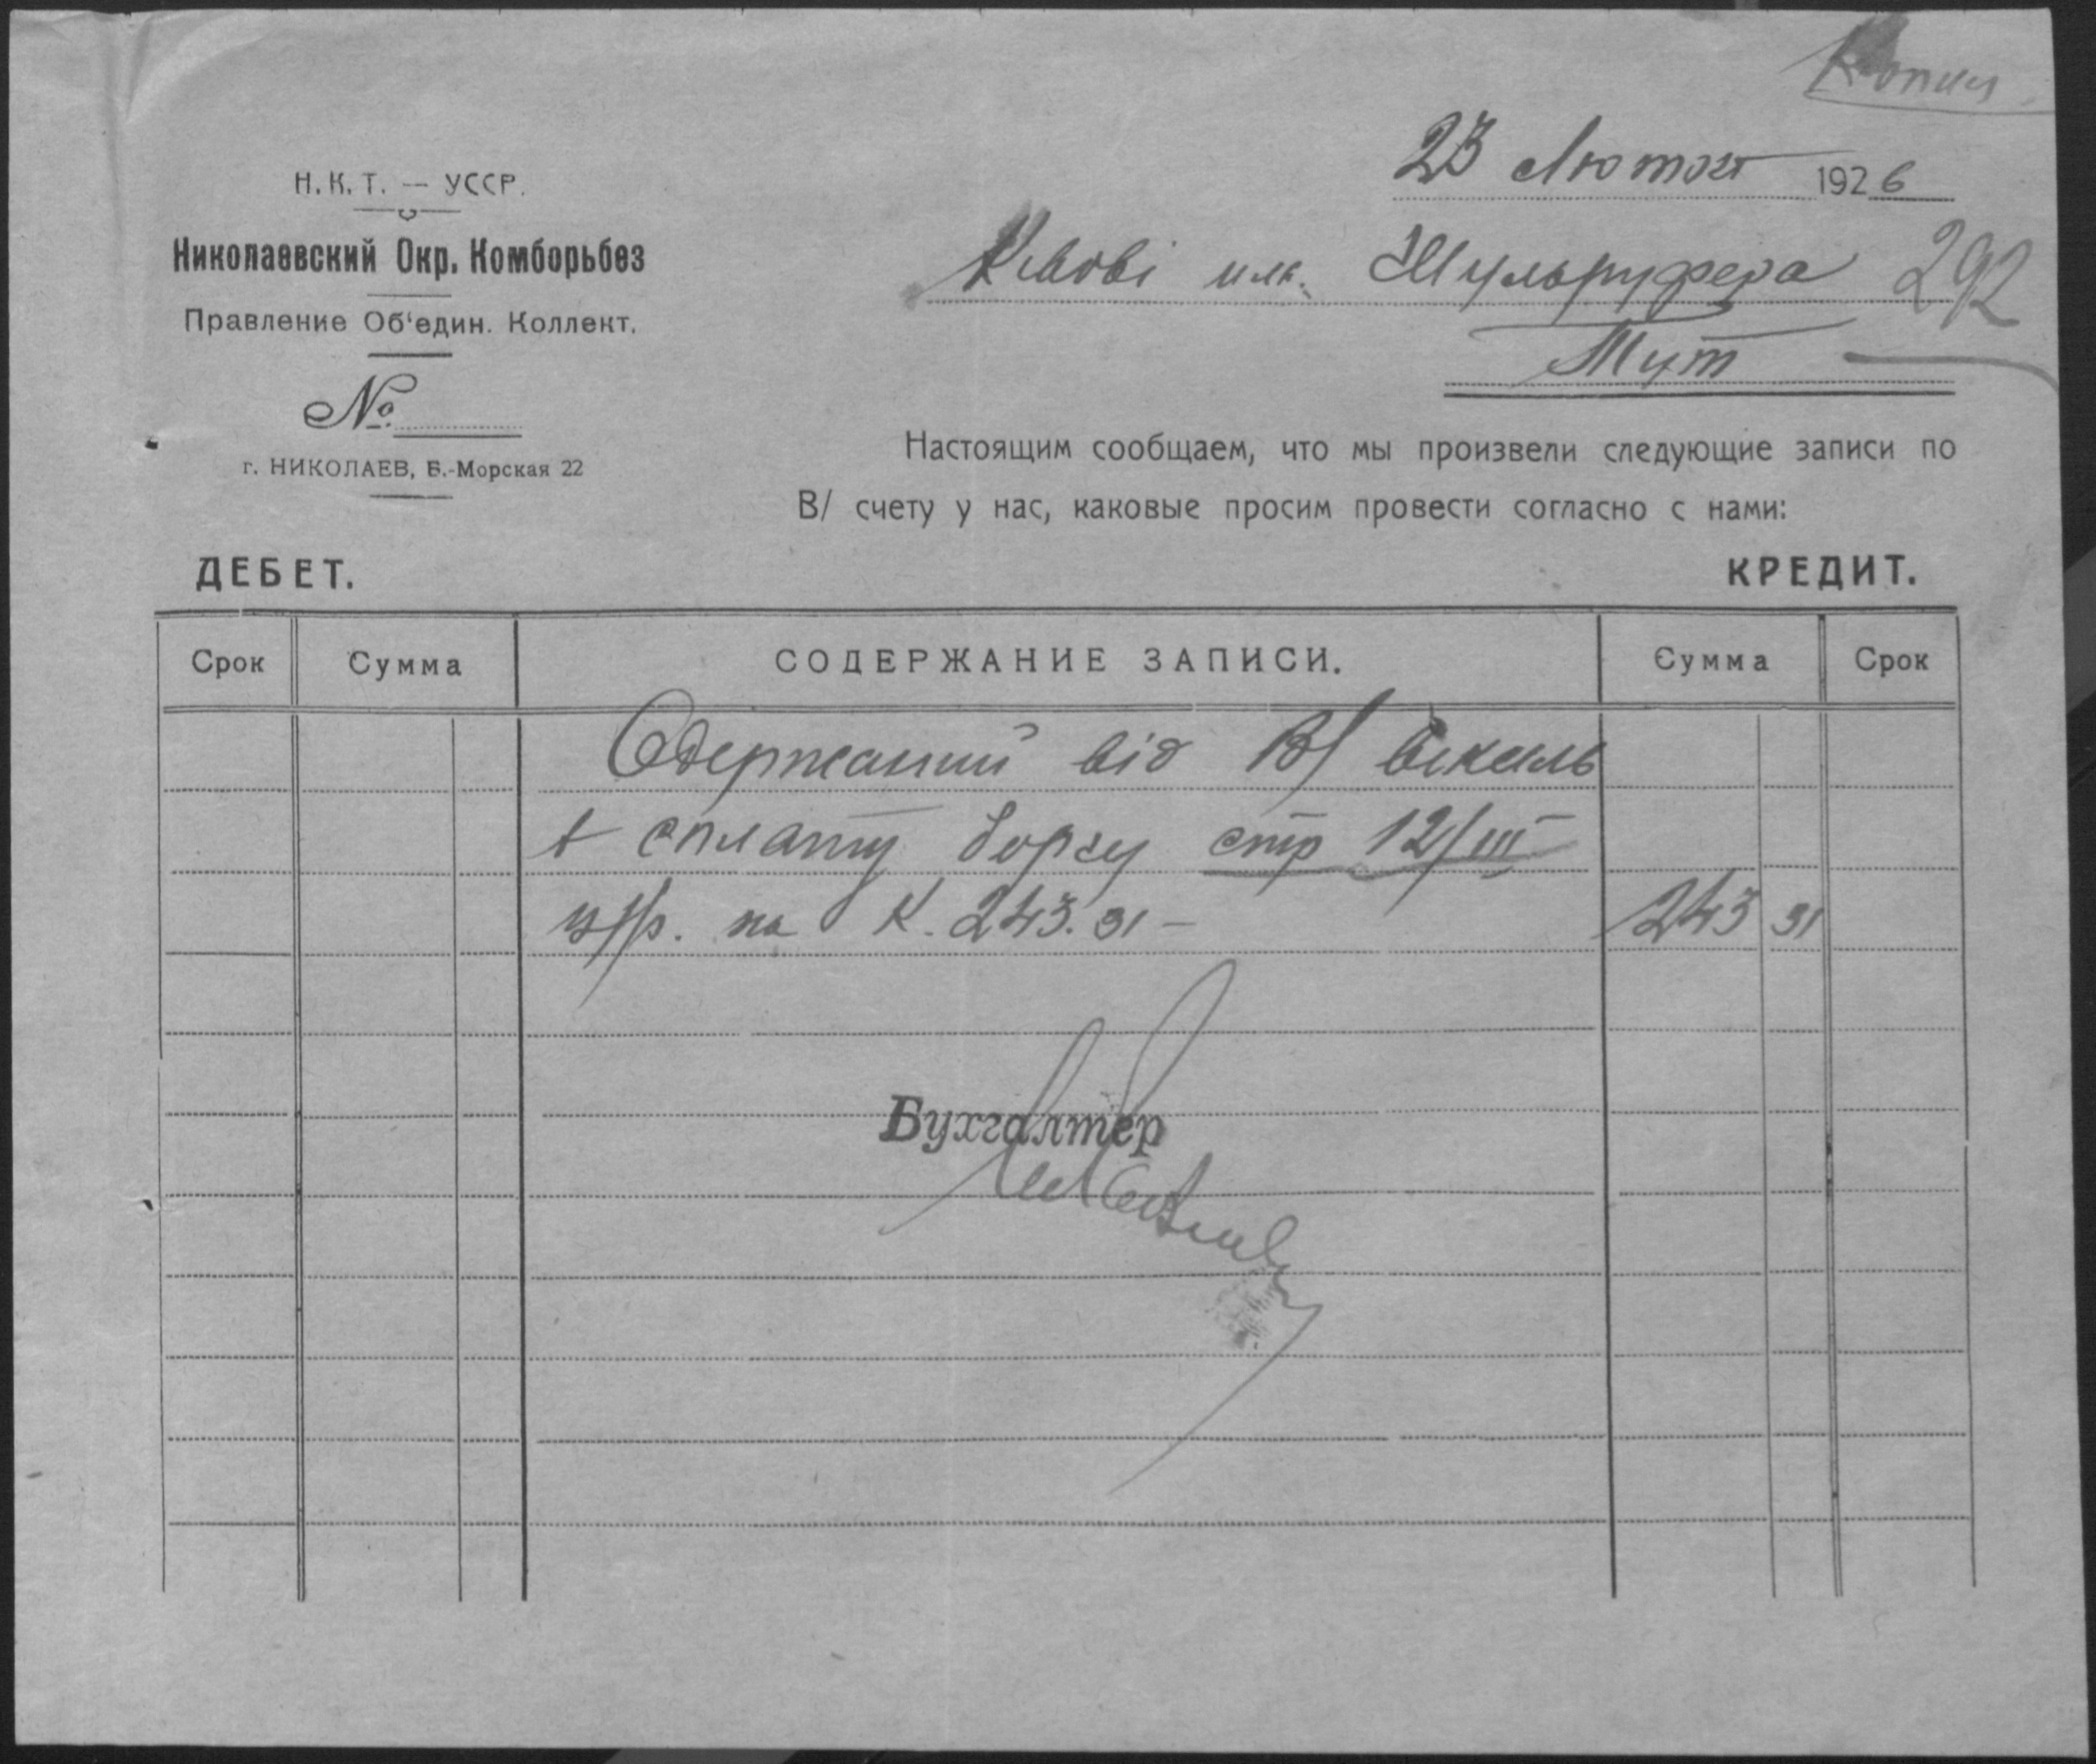 Копия
23 Лютого 1926
Н.К.Т. — УССР.
Николаевский Окр. Комборьбез
Правление Об'един. Коллект.
№
г. НИКОЛАЕВ, Б.-Морская 22
292
Тут
Настоящим сообщаем, что мы произвели следующие записи по
В/ счету у нас, каковые просим провести согласно с нами:
ДЕБЕТ.
КРЕДИТ.
Срок Сумма СОДЕРЖАНИЕ ЗАПИСИ. Сумма Срок
Одержаний від В/ вексель
в сплату боргу стр 12/III
ц/р. на К. 243.31 — 243 31
Бухгалтер